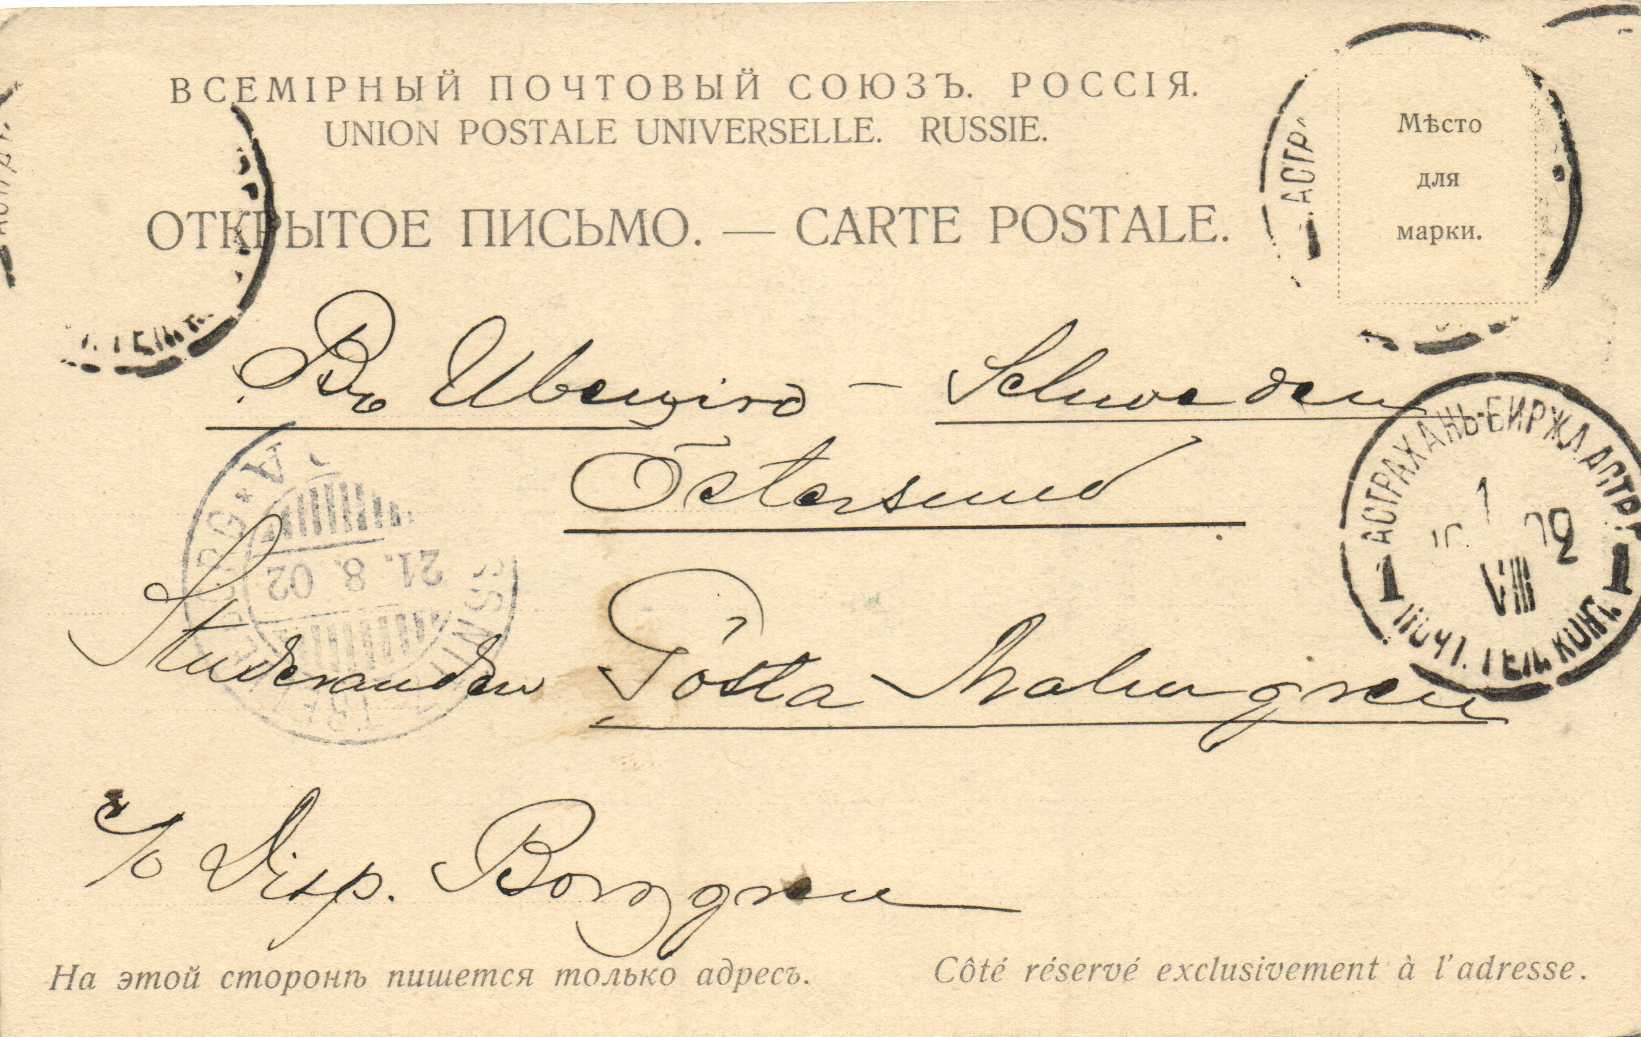 ВСЕМІРНЫЙ ПОЧТОВЫЙ СОЮЗЪ. РОССІЯ.
UNION POSTALE UNIVERSELLE. RUSSIE.
ОТКРЫТОЕ ПИСЬМО. — CARTE POSTALE.
Мѣсто
для
марки.
АСТРА
Въ Швецію – Schweden
АСТРАХАНЬ-БИРЖА АСТР.
1 VIII 02
1 1
ПОЧТ. ТЕЛ. КОНТ.
Östersund
21. 8. 02
Studeranden Gösta Malmgren
c/o Disp. Borggren
На этой сторонѣ пишется только адресъ.
Côté réservé exclusivement à l'adresse.